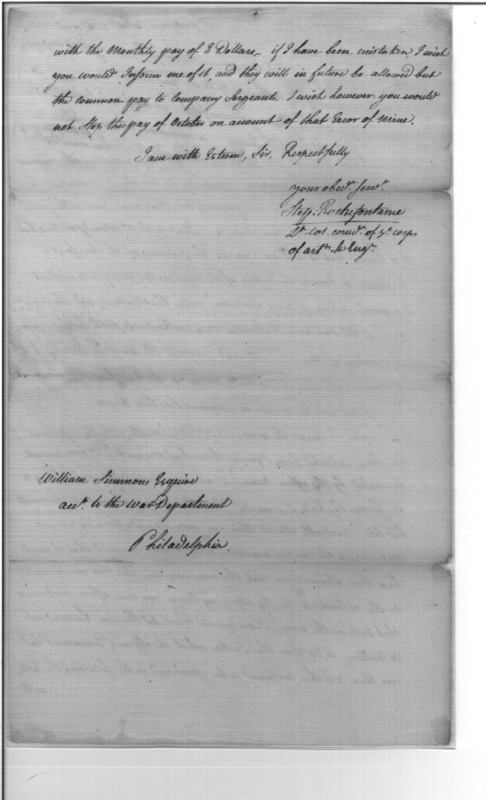 with the Monthly pay of 8 Dollars_ if I have been mistaken, I wish
you would Inform me of it, and they will in future be allowed but
the common pay to Company Sergeants. I wish however you would
not Stop the pay of October on account of that Error of mine.
I am with Esteem, Sir, Respectfully
your obedt. Servt.
Step. Rochefontaine
Lt. Col. comdt. of ye. corps
of arty. & Engrs.
William Simmons Esquire
acct. to the War Department
Philadelphia.